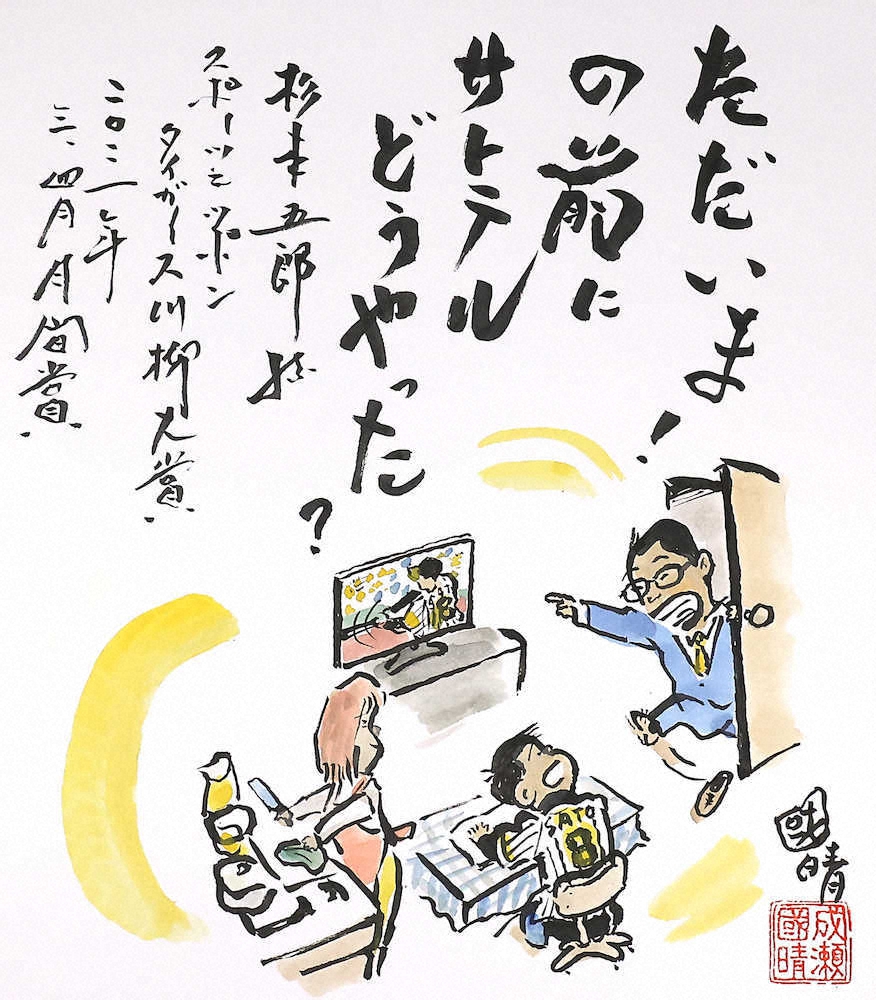 ただいま!
の前に
サトテル
どうやった?
杉本五郎
スポーツニッポン
タイガース川柳大賞
二〇二一年
三、四月月間賞
8
SATO
8
國晴
成瀬
國晴